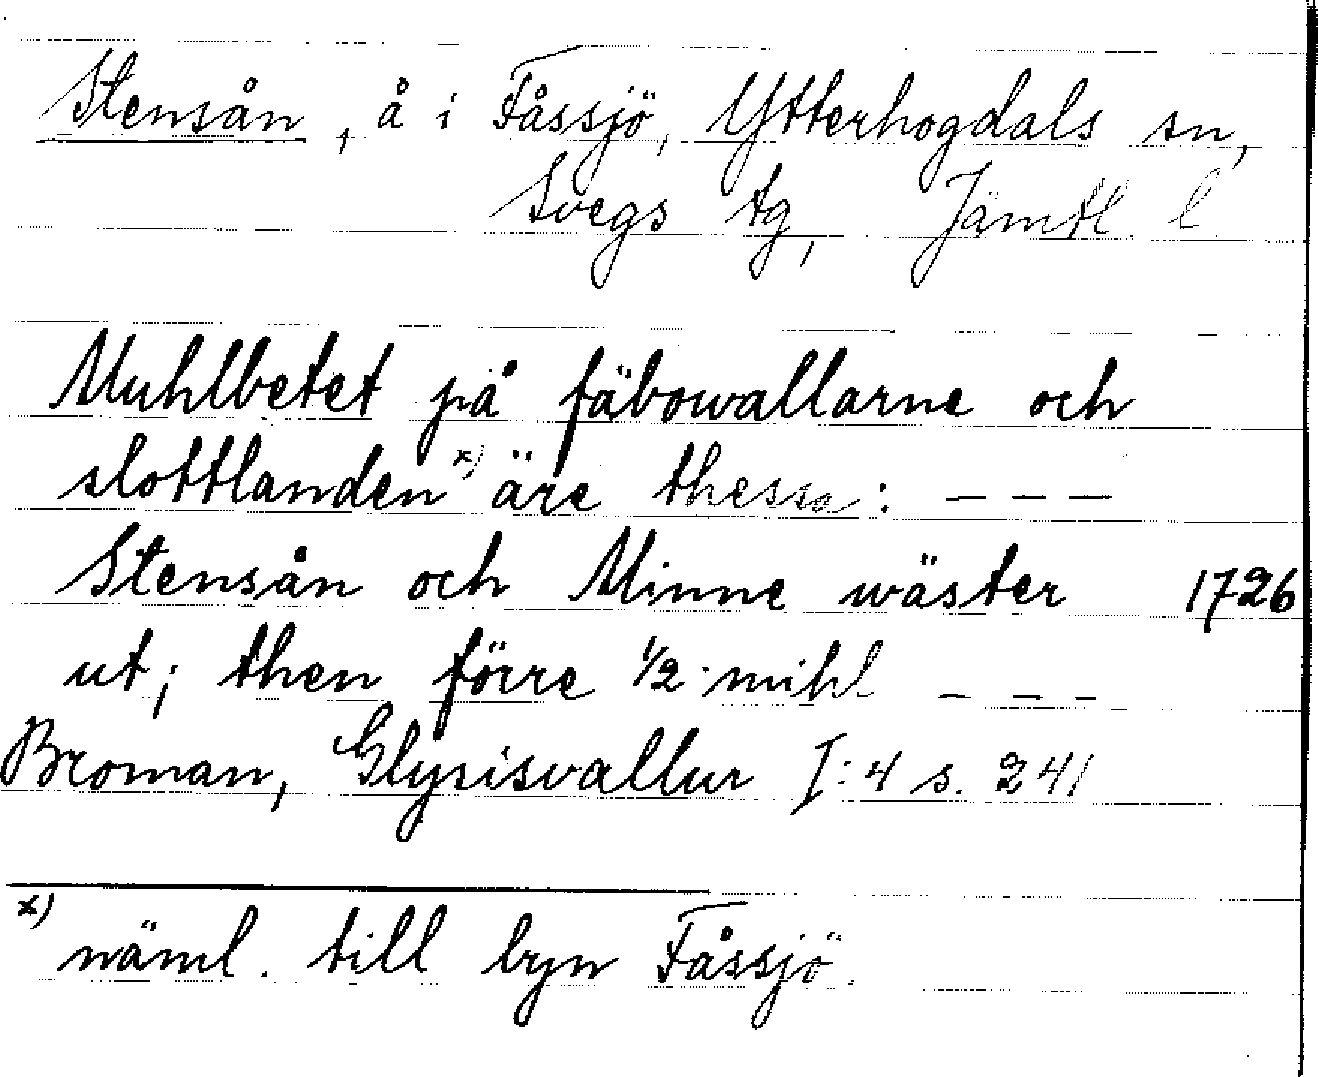 Stensån, å i Fåssjö, Ytterhogdals sn,
Svegs tg, Jämtl. l.
Muhlbetet på fäbowallarne och
slottlanden x) äre thessa: – – –
Stensån och Minne wäster 1726
ut; then förre 1/2 mihl – – –
Broman, Glysisvallur I:4 s. 241
x) näml. till byn Fåssjö.